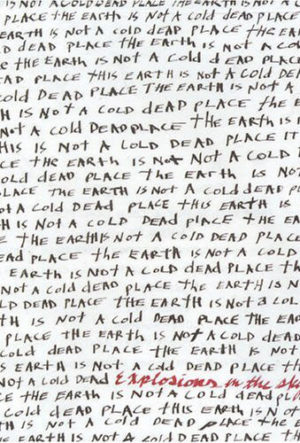 IS NOT A COLD DEAD PLACE THE EARTH IS NOT A
PLACE THE EARTH IS NOT A COLD DEAD PLACE
EARTH IS NOT A COLD DEAD PLACE THE EAR
D DEAD PLACE THE EARTH IS NOT A CO
E THE EARTH IS NOT A COLD DEAD PLACE
AD PLACE THIS EARTH IS NOT A COLD DE
COLD DEAD PLACE THE EARTH IS NOT A
H IS NOT A COLD DEAD PLACE THE E
NOT A COLD DEAD PLACE THE EARTH IS
HIS IS NOT A COLD DEAD PLACE IT
CE THE EARTH IS NOT A COLD
OLD DEAD PLACE THE EARTH IS NOT
LACE THE EARTH IS NOT A COLD DEAD P
OT A COLD DEAD PLACE THIS EARTH IS
H IS NOT A COLD DEAD PLACE THE EAR
E THE EARTH IS NOT A COLD DEAD PLACE
EAD PLACE THE EARTH IS NOT A COLD
EARTH IS NOT A COLD DEAD PLACE TH
NOT A COLD DEAD PLACE THE EARTH IS N
LD DEAD PLACE THE EARTH IS NOT A COL
TH IS NOT A COLD DEAD PLACE THE EAR
PLACE THE EARTH IS NOT A COLD DEAD
COLD DEAD PLACE THE EARTH IS NOT
IS EARTH IS NOT A COLD DEAD PLACE TH
NOT A COLD DEAD Explosions in the sky
THE EARTH IS NOT A COLD DEAD PL
COLD DEAD PLACE THIS EARTH IS NOT
IS NOT A COLD DEAD PLACE THE
EARTH IS NOT A COLD DEAD PLACE TH